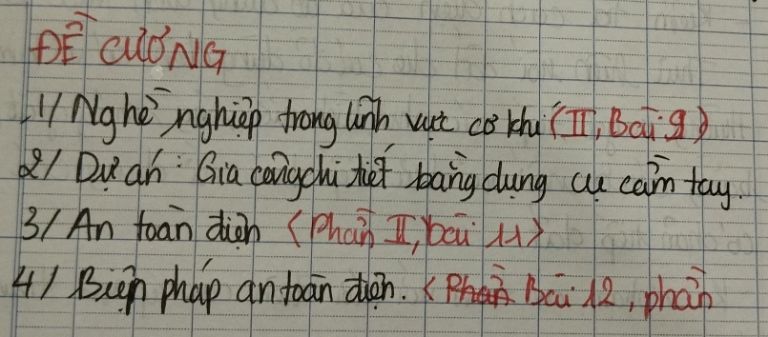 ĐỀ CƯƠNG
1/ Nghề nghiệp trong lĩnh vực cơ khí (II, Bài 9)
2/ Dự án: Gia công chi tiết bằng dụng cụ cầm tay.
3/ An toàn điện <Phần II, bài 11>
4/ Biện pháp an toàn điện. < Phần Bài 12, phần